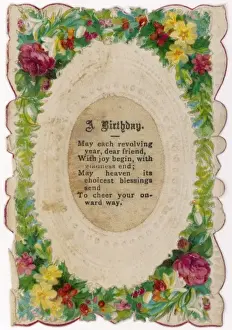 A Birthday.
May each revolving
year, dear friend,
With joy begin, with
gladness end;
May heaven its
choicest blessings
send
To cheer your on-
ward way.